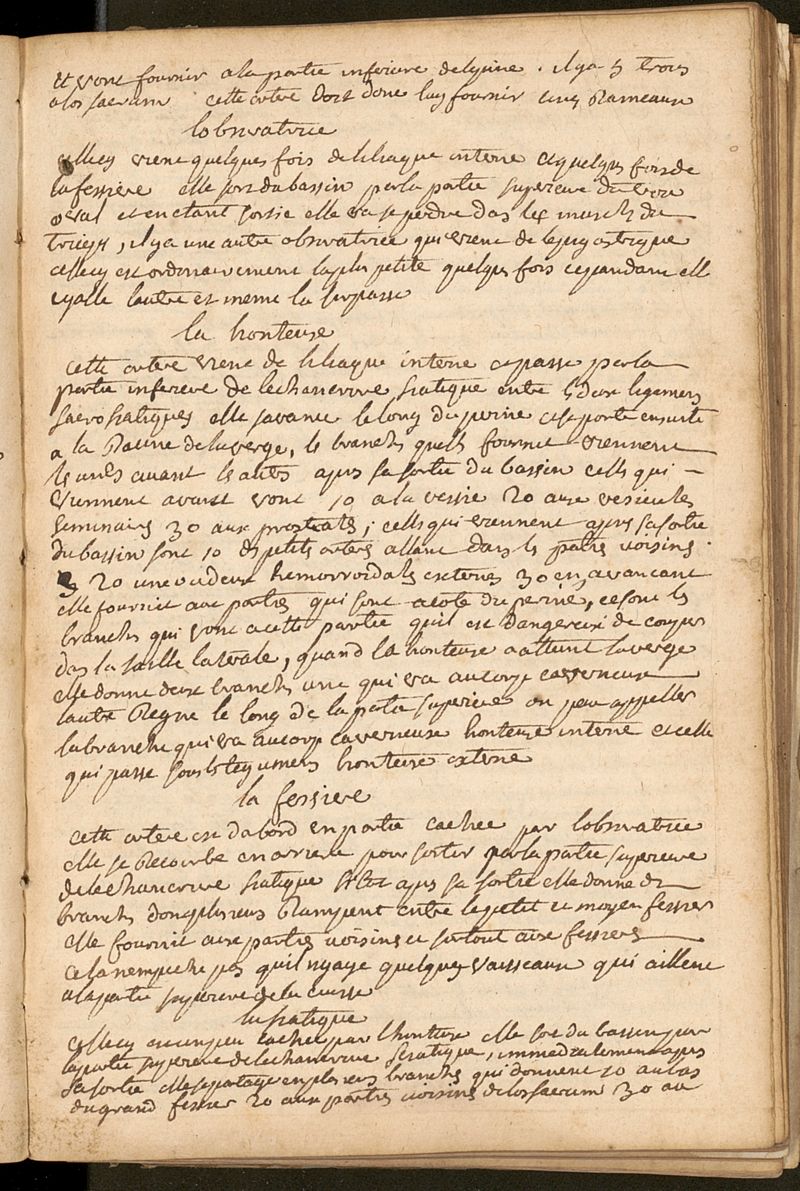 et vont fournir a la partie inferieure de lepine . il y a 5 trous
a los sacrum cette artere doit donc luy fournir cinq Rameaux
lobturatrice
celle cy vient quelques fois de liliaque interne et quelques fois de
la fessiere elle sort du bassin par la partie superieure du trou
oval et en etant sortie elle va se perdre das les muscles du
triceps, il y a une autre obturatrice qui vient de lepigastrique
celle cy est ordinairement la plus petite quelques fois cependant elle
egalle lautre et meme la surpasse
la honteuse
cette artere vient de liliaque interne et passe par la
partie inferieure de lechancrure sciatique entre les deux ligamens
sacrosciatiques elle savance le long du perine et se porte ensuite
a la Racine de la verge, les branches quelle fournit viennent
les unes avant les autres apres sa sortie du bassin celles qui
viennent avant vont 1o a la vessie 2o aux vesicules
seminaires 3o aux prostates ; celles qui viennent apres sa sortie
du bassin sont 1o des petites arteres allant dans les parties voisines
2o une ou deux hemorroidales externes 3o en savancant
elle fournit aux parties qui sont a cote du perine, ce sont les
branches qui vont a cette partie quil est dangereux de couper
das la taille laterale, quand la honteuse a atteint la verge
elle donne deux branches une qui va au corps caverneux
lautre Regne le long de la partie superieure on peu appeller
la branche qui va au corps caverneux honteuse interne et celle
qui passe sous les tegumens honteuse externe
la fessiere
cette artere est dabord en partie cachee par lobturatrice
elle se Recourbe en arriere pour sortir par la partie superieure
de lechancrure sciatique sitot apres sa sortie elle donne des
branches dont plusieurs Rampent entre le petit et moyen fessier
elle fournit aux parties voisines et surtout aux fessiers
cela nempeche pas quil ny aye quelques vaisseaux qui aillent
a la partie superieure de la cuisse
la sciatique
celle cy est un peu cachee par lhonteuse elle sort du bassin par
la partie superieure de lechancrure sciatique, immediatement apres
sa sortie elle se partage en plusieurs branches qui donnent 1o au bas
du grand fessier 2o aux parties voisines de los sacrum 3o au